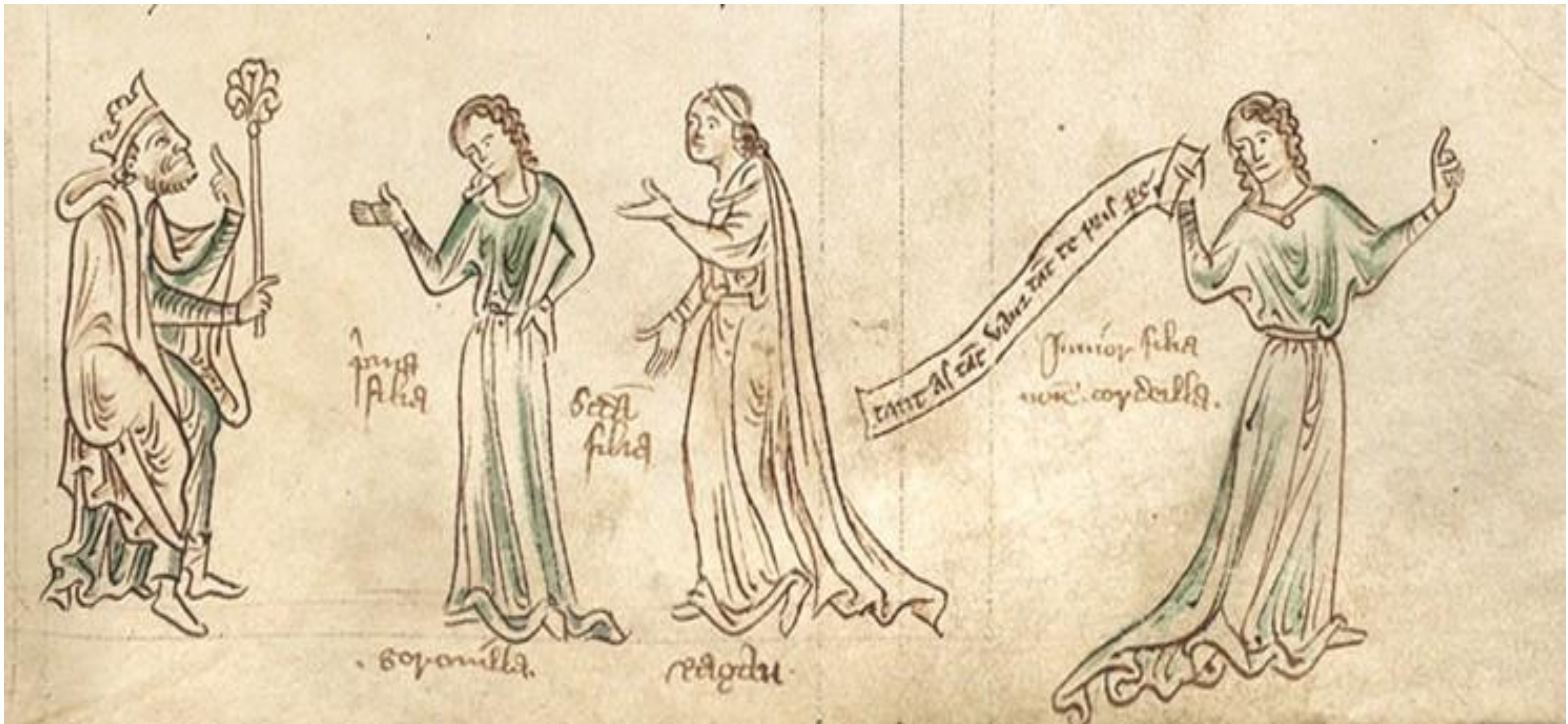 p̂ma
filia
Scd̄a
filia
tant As tāt valuz tāt te pris pe
Junior filia
nōīe cordeilla.
. Goronilla.
ragau.